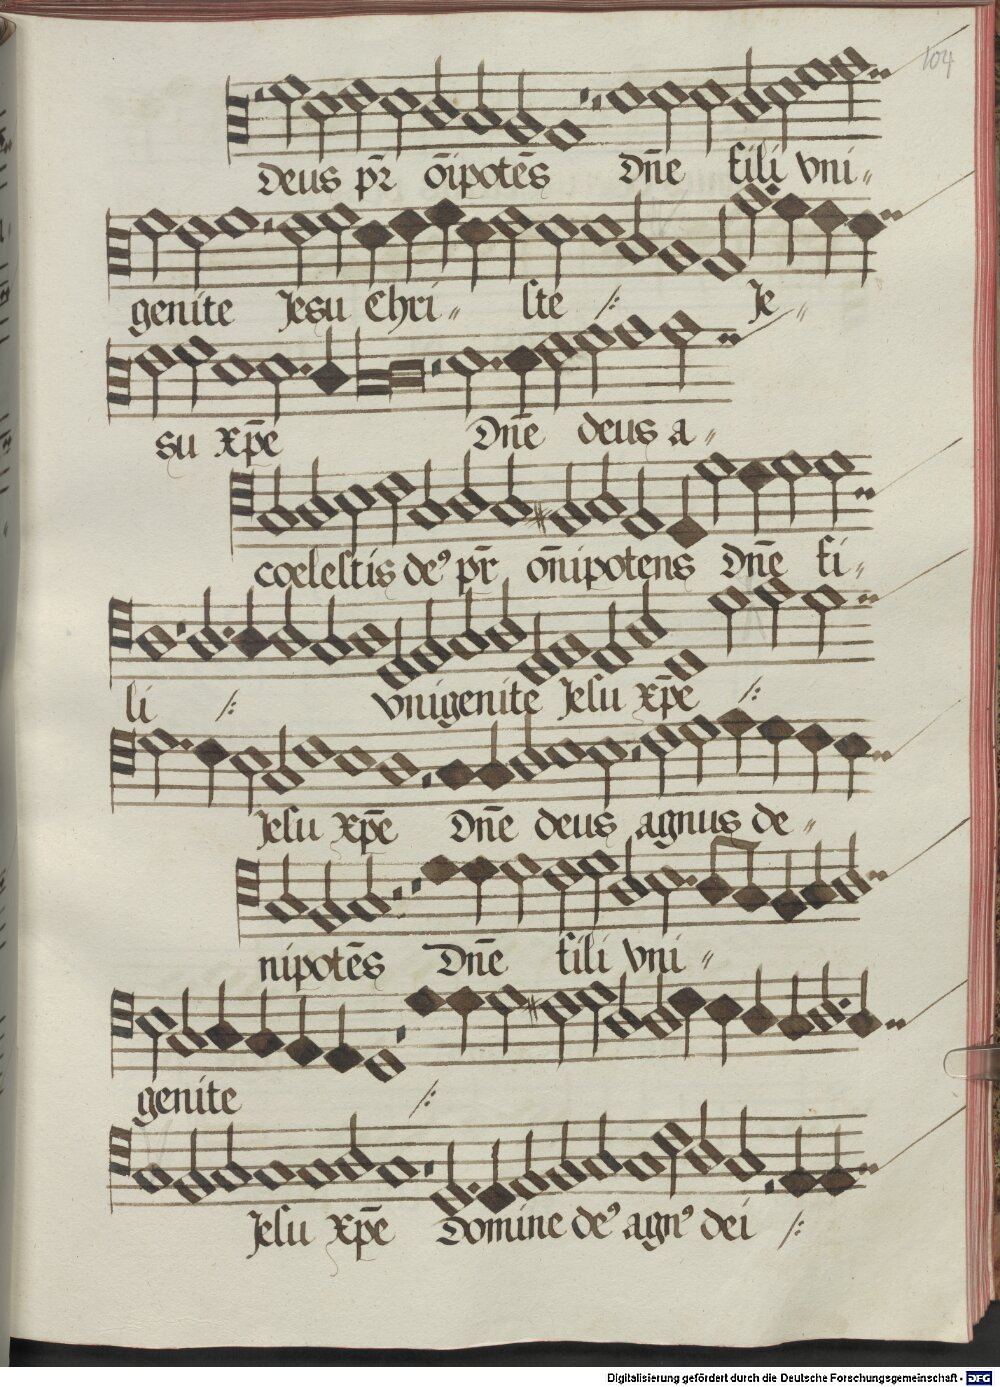 104
Deus pr̄ oīpotēs Dn̄e fili vni〃
genite Jesu Chri〃 ste :/: Je〃
su xp̄e Dn̄e deus a〃
coelestis de⁹ pr̄ on̄ipotens Dn̄e fi〃
li :/: vnigenite Jesu xp̄e :/:
Jesu xp̄e Dn̄e deus agnus de〃
nipotēs Dn̄e fili vni〃
genite :/:
Jesu xp̄e Domine de⁹ agn⁹ dei :/:
Digitalisierung gefördert durch die Deutsche Forschungsgemeinschaft - DFG